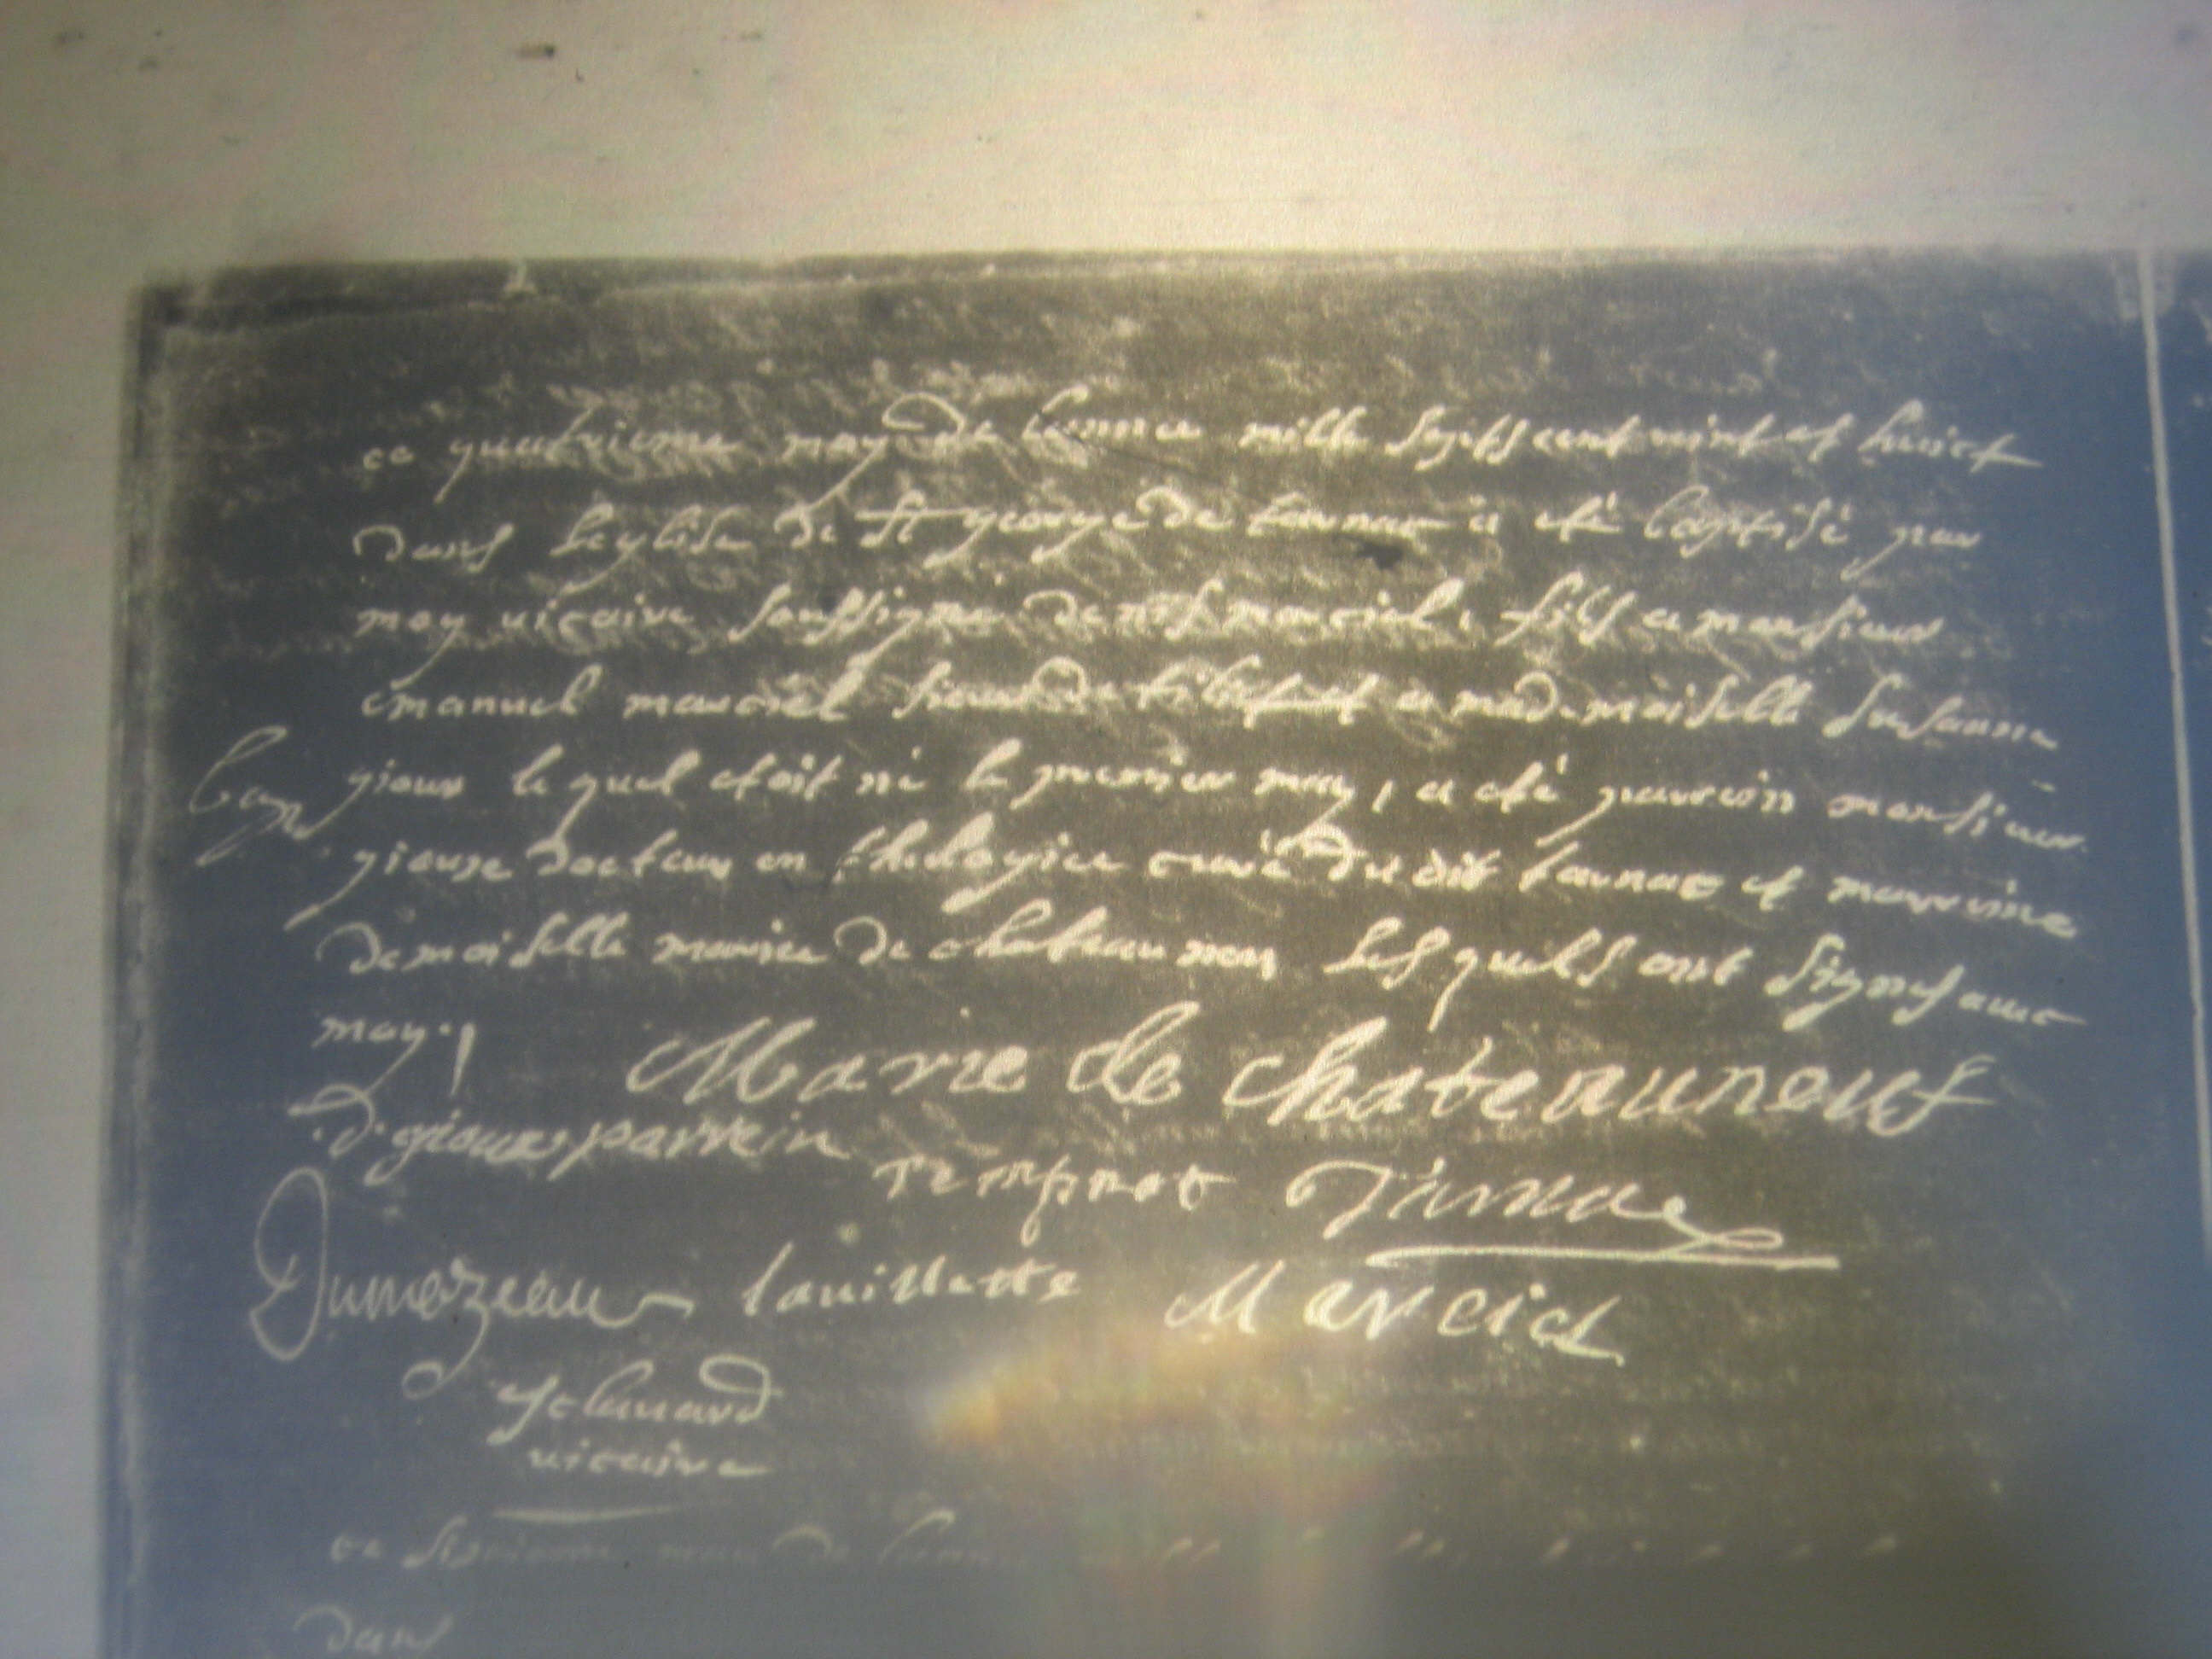 ce quatrieme may de lannee mille sept cent vint et huict
dans leglise de st george de a été baptisé par
moy vicaire soussigne marcial fils a monsieur
emanuel marcial sieur de a mademoiselle susanne
bap
gioux le quel etoit né le premier may, a été parein monsieur
gioux docteur en theologie curé du dit et marrine
demoiselle marie de chateauneu lesquels ont signes avec
moy.
Marie de chateauneuf
gioux parrein
Dumazeau lauillatte Marcial
vicaire
ce de lannee
dans